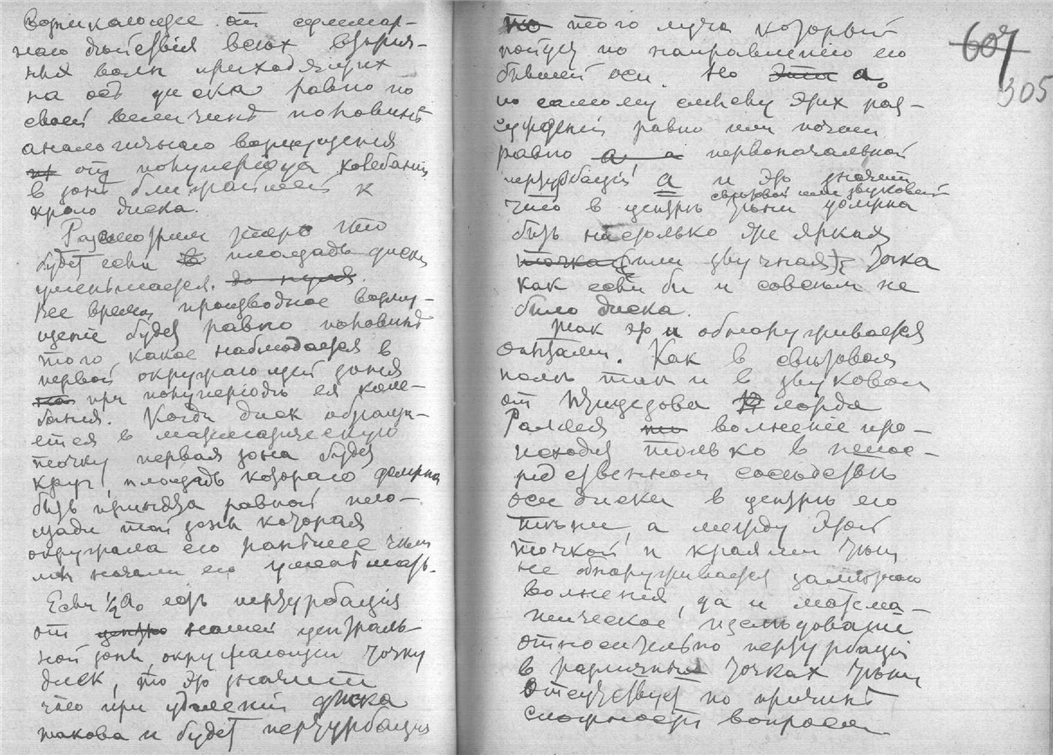 возникающее от суммар-
наго действія всех взрыв-
ных волн приходящих
на ось диска равно по
своей величине половине
аналогичнаго возмущения
от полупериода колебаний
в зоне ближайшей к
краю диска.
Разсмотрим теперь что
будет если площадь диска
уменьшается. до нуля.
Все время производное возму-
щеніе будет равно половине
того какое наблюдается в
первой окружающей зоне
при полупериоде ея коле-
бания. Когда диск обраща-
ется в математическую
точку первая зона будет
круг, площадь котораго должна
быть принята равной пло-
щади той зоны которая
окружала его раньшее чем
мы начали его уменьшать.
Если ½ a₀ есть пертурбация
от центра нашей централь-
ной зоны, окружающей точку
диск, то это значит
что при удалении диска
такова и будет пертурбация
то того луча который
пойдет по направлению его
бывшей оси. Но a₀
по самому смыслу этих раз-
суждений равно или почти
равно a первоначальной
пертурбаціи a и это значит
световой или звуковой
что в центре тени должна
быть настолько же яркая
точка (или звучная) точка
как если бы и совсем не
было диска.
Так это и обнаруживается
опытами. Как в световом
поле так и в звуковом
от лорда
Рэлея волнение про-
исходит только в непос-
редственном соседстве
оси диска в центре его
тени, а между этой
точкой и краями тени
не обнаруживается заметнаго
волнения, да и матема-
тическое изследование
относительно пертурбаций
в различных точках тени
отсутствует по причине
сложности вопроса
607
305